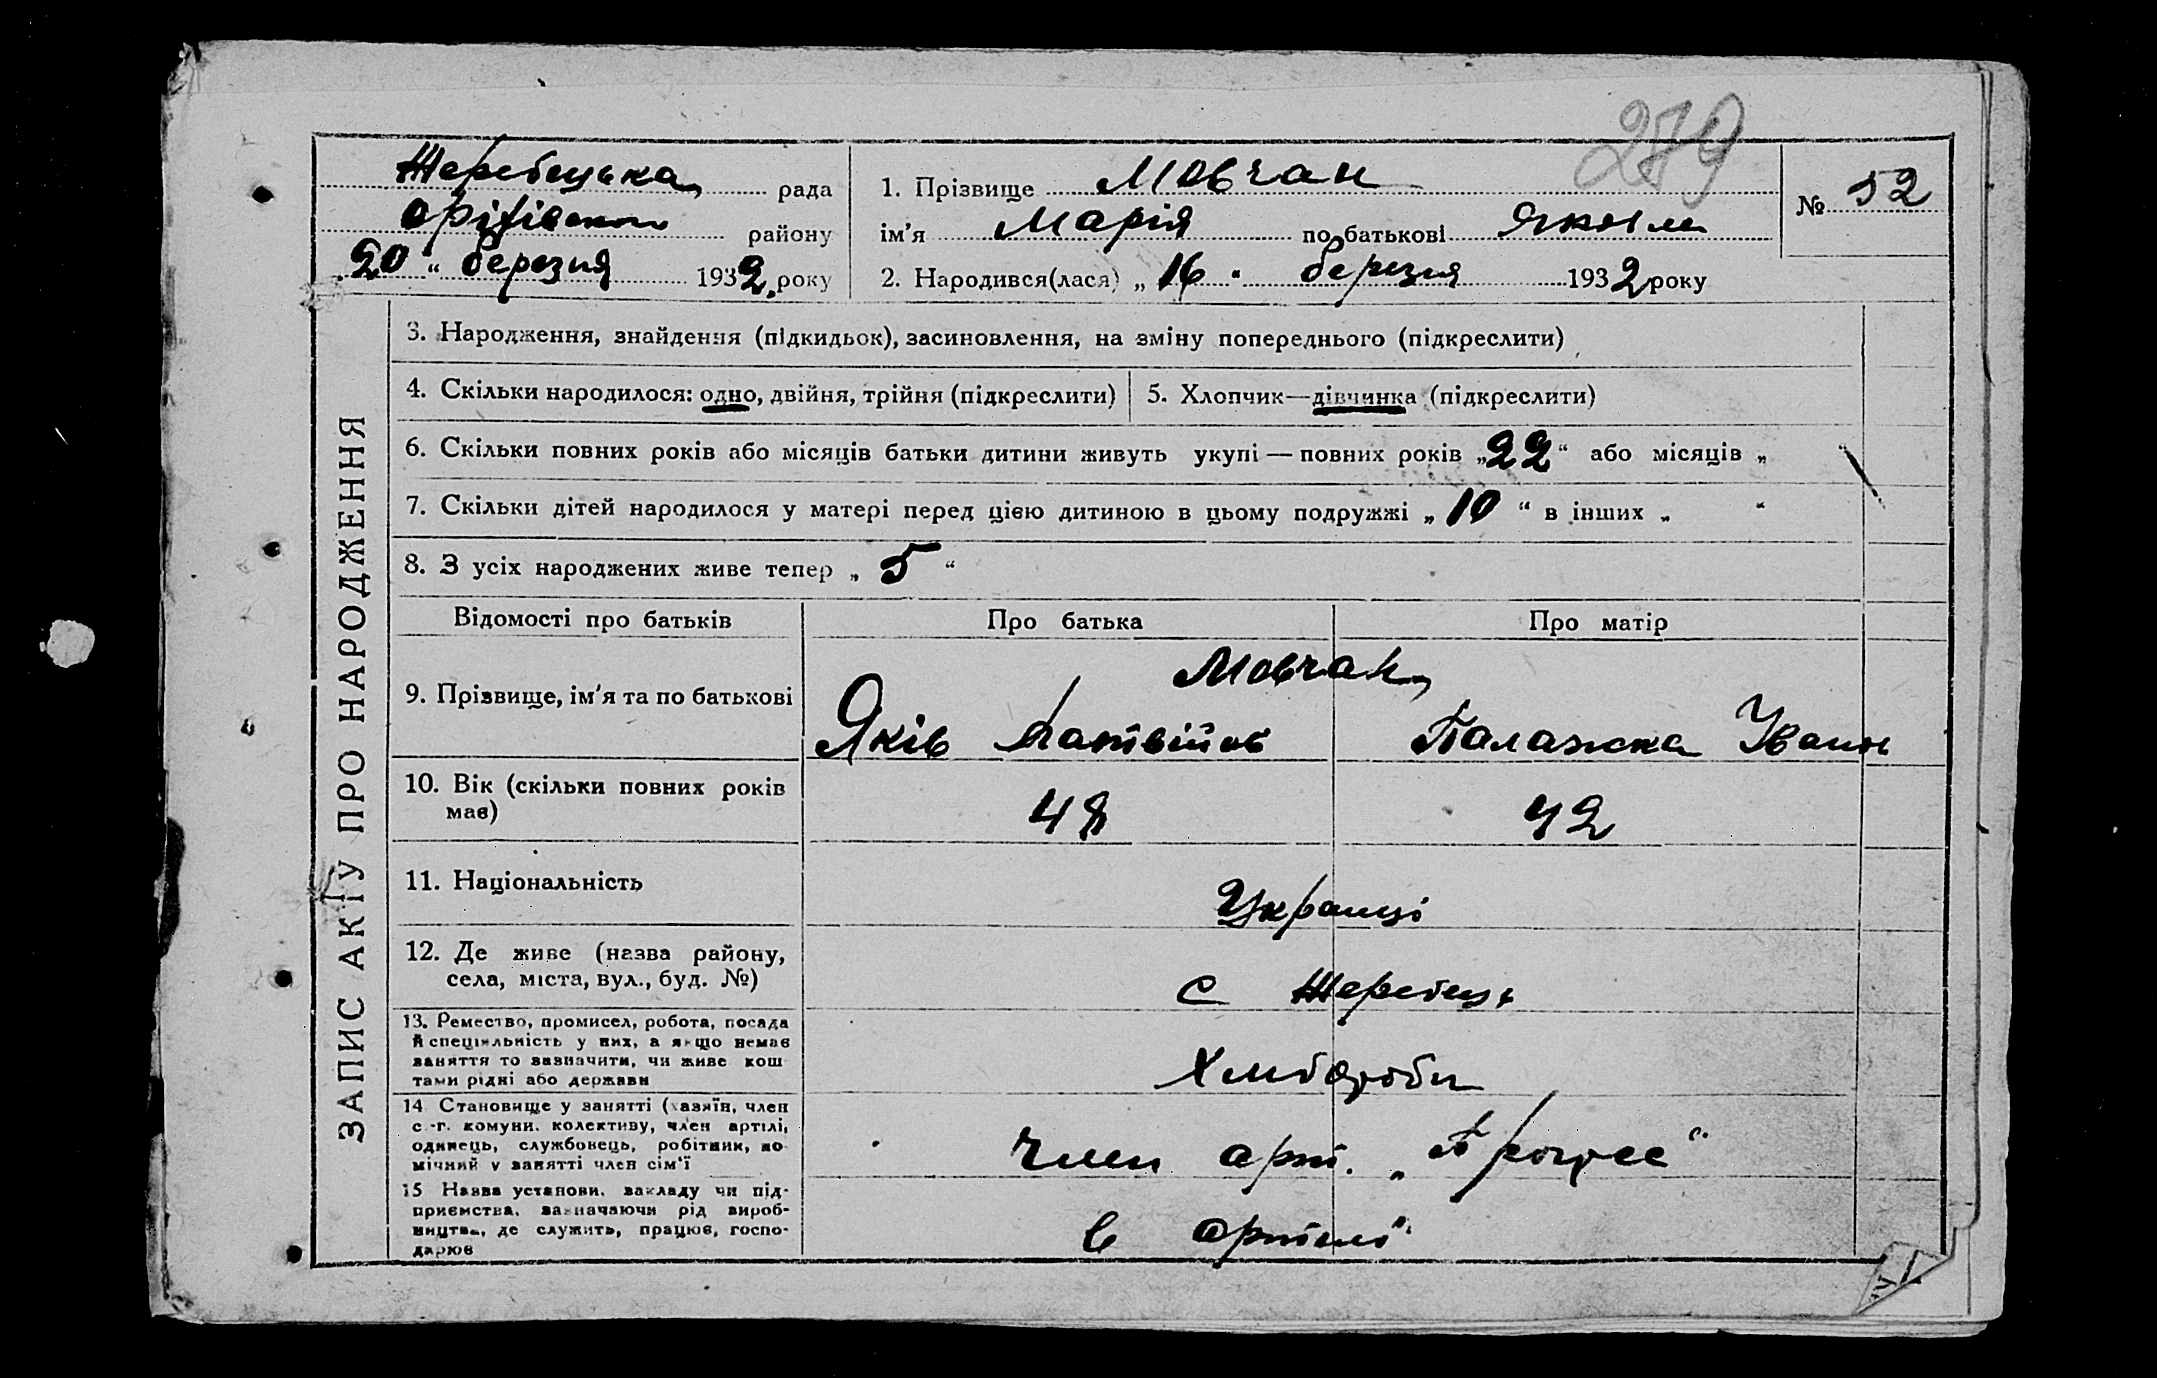 279
Жеребецька рада
Оріхівськ району
„20“ березня 1932 року
1. Прізвище Мовчан
ім'я Марія по батькові
2. Народився(лася) „16“ березня 1932 року
№ 52
ЗАПИС АКТУ ПРО НАРОДЖЕННЯ
3. Народження, знайдення (підкидьок), засиновлення, на зміну попереднього (підкреслити)
4. Скільки народилося: одно, двійня, трійня (підкреслити)
5. Хлопчик—дівчинка (підкреслити)
6. Скільки повних років або місяців батьки дитини живуть укупі — повних років „22“ або місяців „ “
7. Скільки дітей народилося у матері перед цією дитиною в цьому подружжі „10“ в інших „ “
8. З усіх народжених живе тепер „5“
Відомості про батьків Про батька Про матір
Мовчан
9. Прізвище, ім'я та по батькові Яків Матвійов Палажка Іванов
10. Вік (скільки повних років
має) 48 42
11. Національність Українці
12. Де живе (назва району,
села, міста, вул., буд. №) с Жеребець
13. Ремество, промисел, робота, посада
й спеціяльність у них, а якщо немає
заняття то зазначити, чи живе кош
тами рідні або держави
Хлібороби
14 Становище у занятті (хазяїн, член
с.-г. комуни, колективу, член артілі,
одинець, службовець, робітник, по
мічний у занятті член сім'ї
Член арт. „Прогрес“
15 Назва установи, закладу чи під-
приємства, зазначаючи рід вироб-
ництва, де служить, працює, госпо-
дарює
в артілі